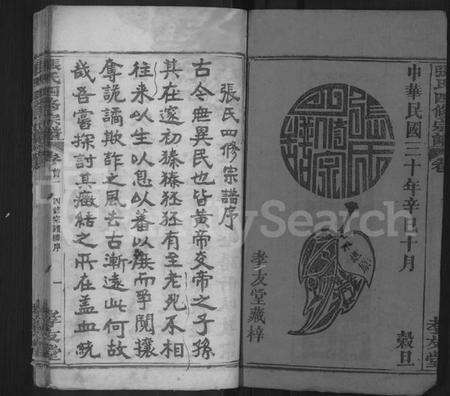 中華民國三十年辛巳十月
穀旦
張氏四修宗譜
孝友堂藏梓
張氏四修宗譜序
古今無異民也皆黃帝炎帝之子孫
其在邃初獉獉狉狉有至老死不相
往來以生以息以蕃以庶而爭鬩攘
奪詭譎欺詐之風去古漸遠此何故
哉吾嘗探討其癥結之所在蓋血統
張氏四修宗譜
卷首
四修宗譜序
一
孝友堂
FamilySearch